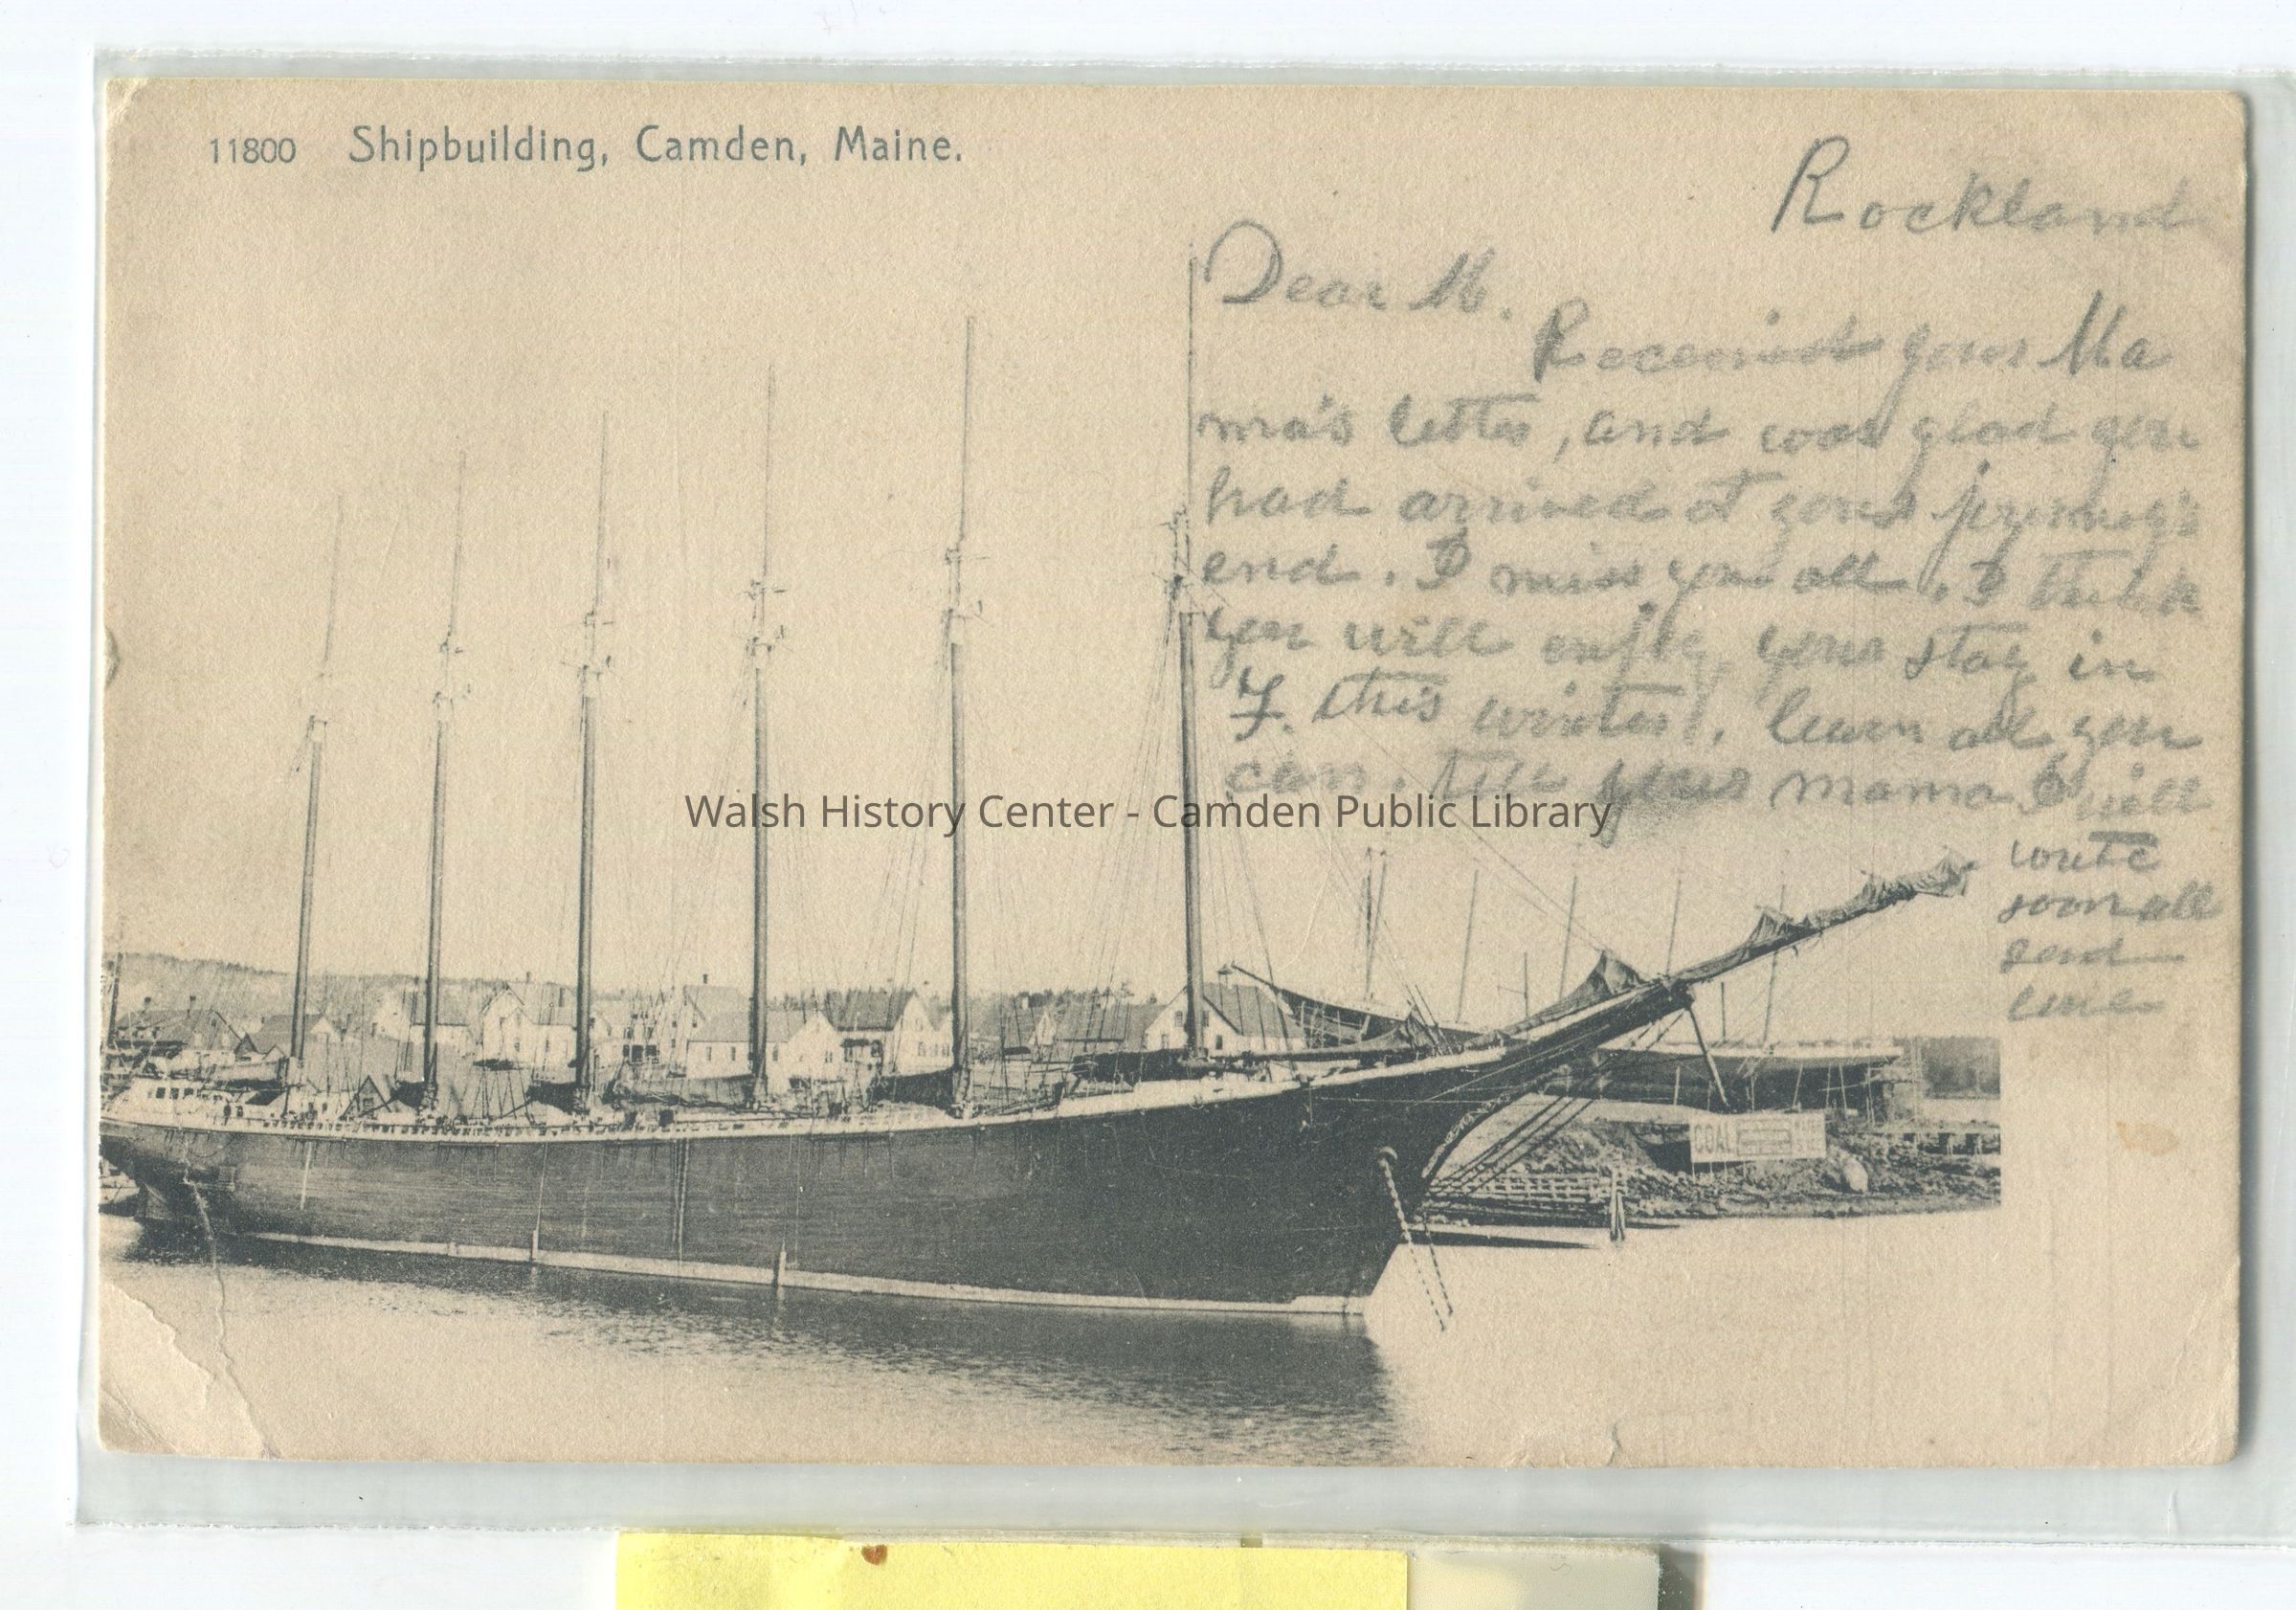 11800 Shipbuilding, Camden, Maine.
Rockland
Dear M.
Received your Ma
ma's letter, and was glad you
had arrived at your jurney's
end. I miss you all. I think
you will enjoy your stay in
F. this winter. learn all you
can. tell your mama I will
write
soon all
send
love
Walsh History Center - Camden Public Library
COAL